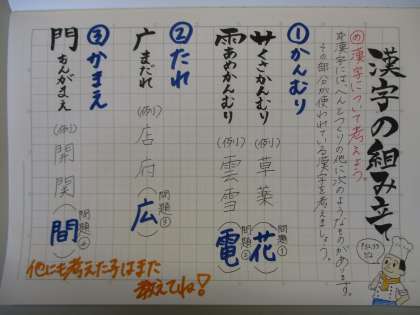 漢字の組み立て
め 漢字について考えよう。
本漢字には、へんとつくりの他に次のようなものがあります。
その部分が使われている漢字を考えましょう。
①かんむり
サくさかんむり
(例)草薬
問題①
(花)
雨あめかんむり
(例)雲雪
問題②
(電)
②たれ
广まだれ
(例)店府
問題③
(広)
③かまえ
門もんがまえ
(例)開関
問題④
(間)
他にも考えた子はまた
教えてね!